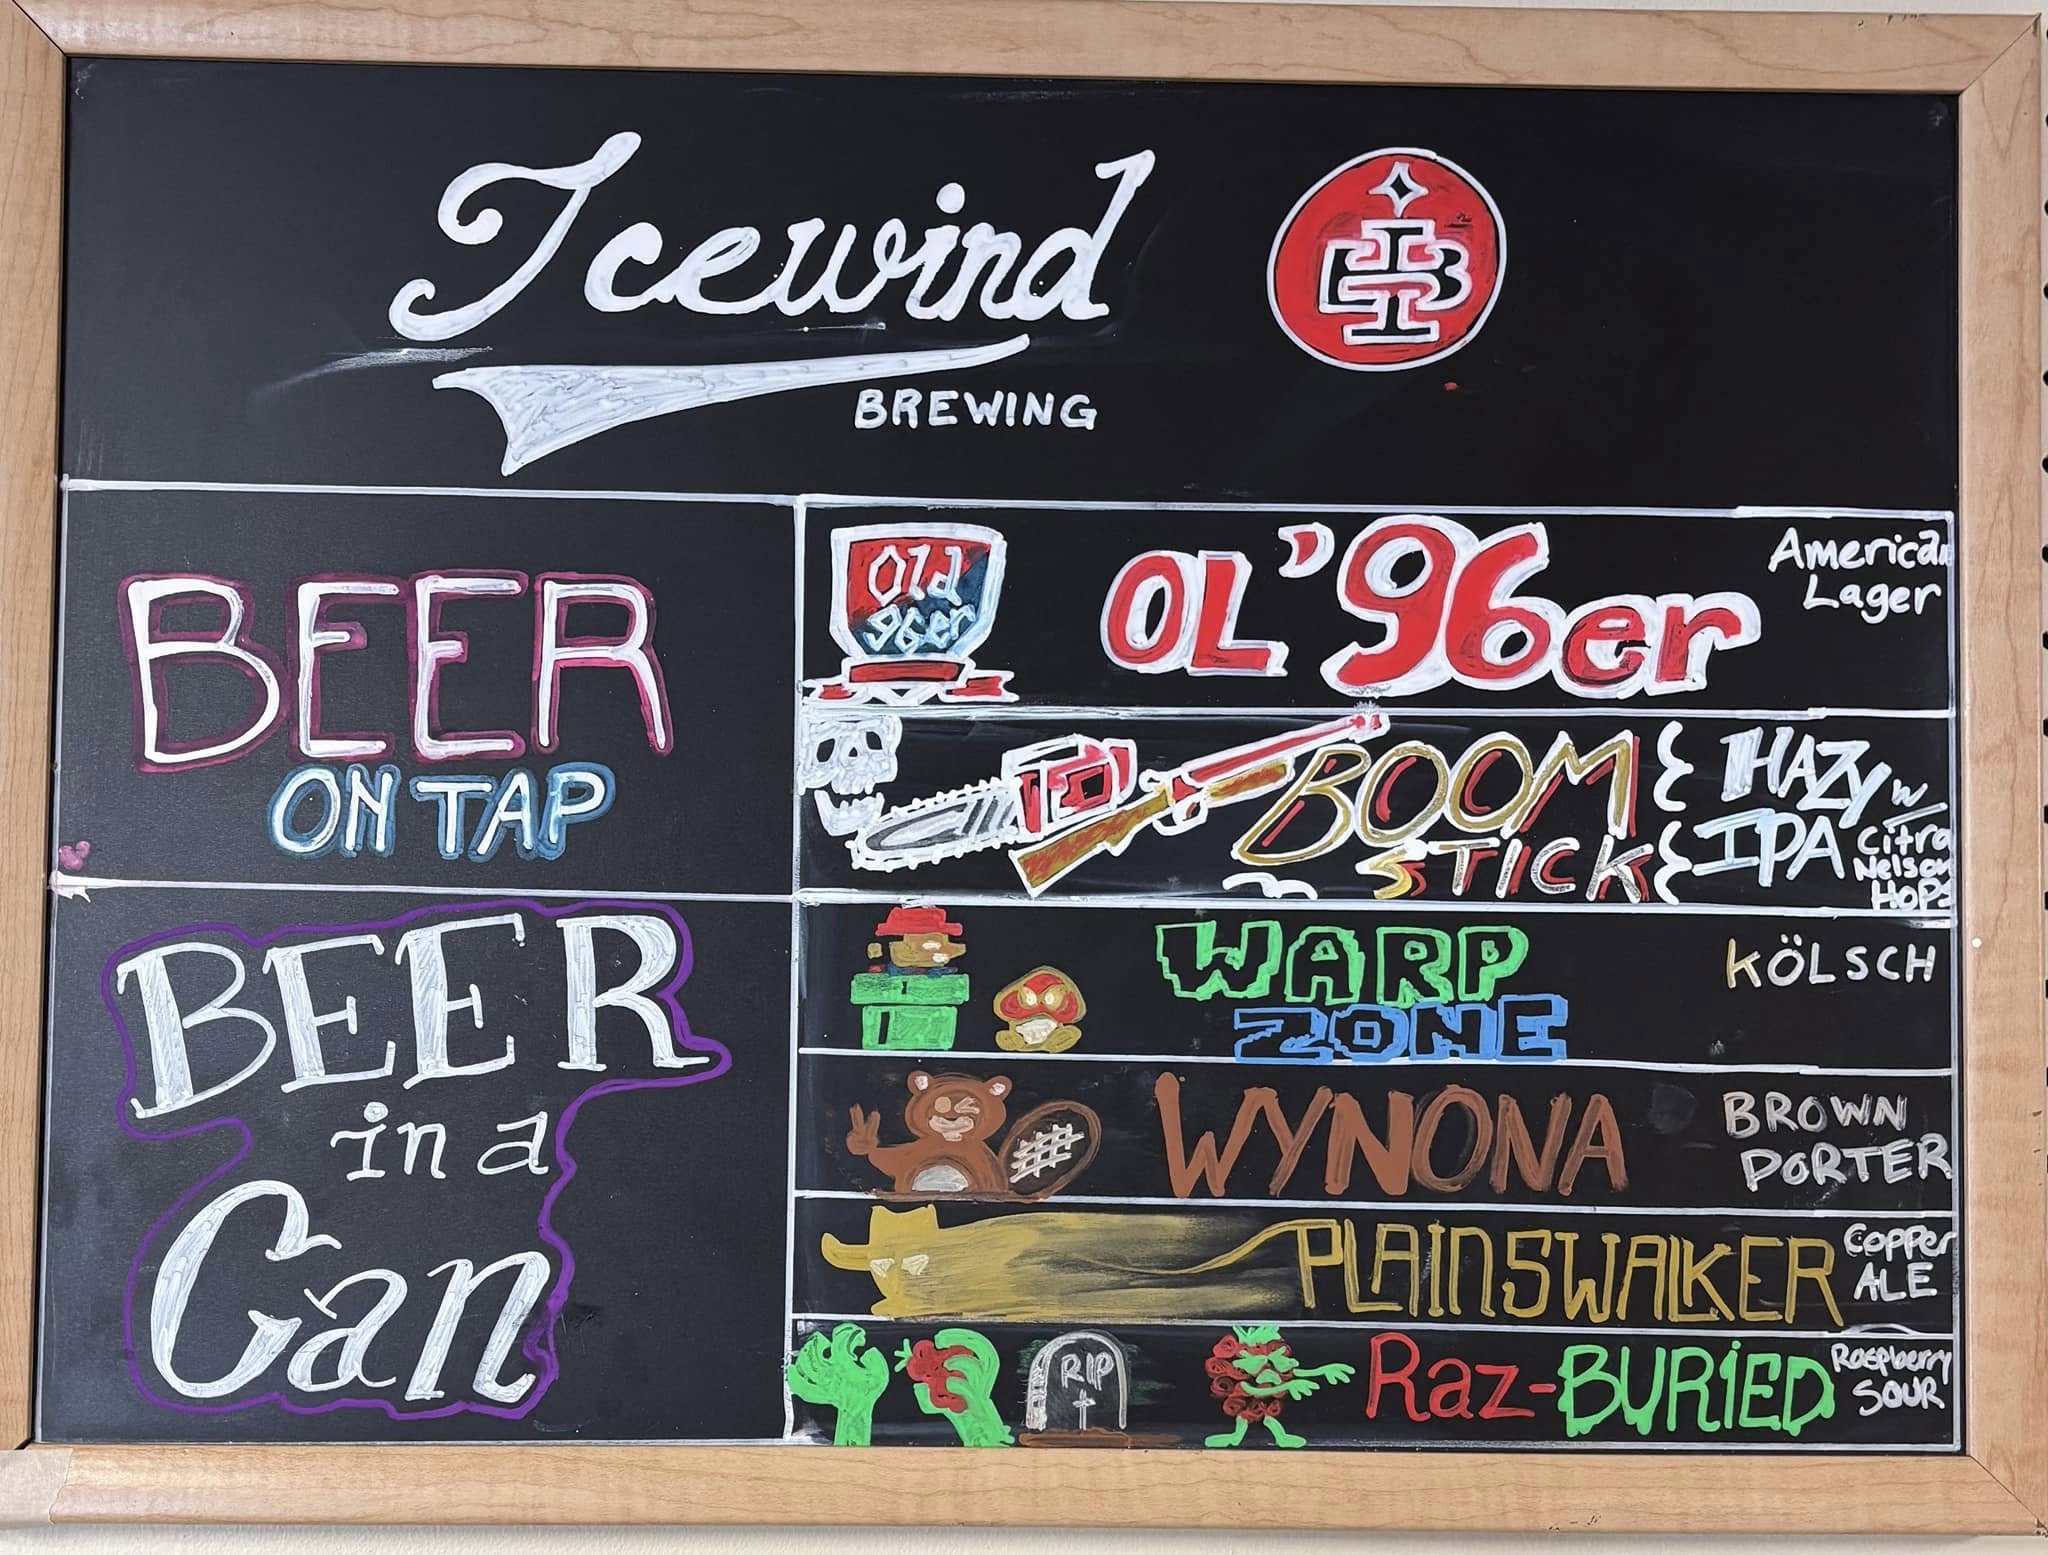 Icewind
BREWING
IB
BEER
ON TAP
Old
96er
OL '96er
American
Lager
BOOM
STICK
HAZY
IPA
w/
Citra
Nelson
HOPS
BEER
in a
Can
WARP
ZONE
KÖLSCH
WYNONA
BROWN
PORTER
PLAINSWALKER
COPPER
ALE
RIP
Raz-BURiED
Raspberry
SOUR